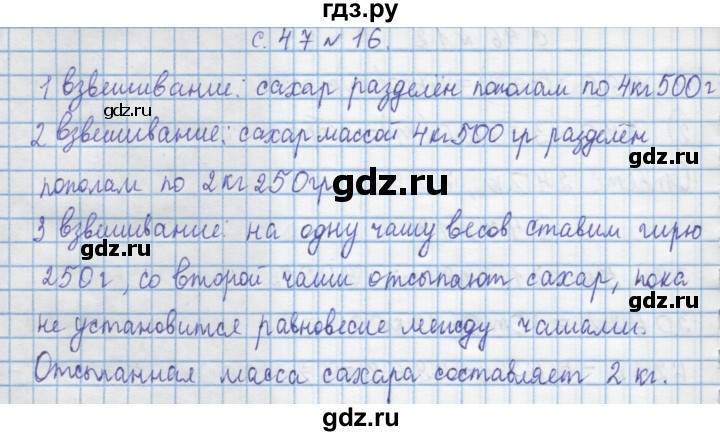 гдз.ру
с. 47 № 16.
1 взвешивание: сахар разделён пополам по 4кг 500г
gdz.ru gdz.ru
2 взвешивание: сахар массой 4кг 500 гр разделён
пополам по 2кг 250гр
gdz.ru
3 взвешивание: на одну чашу весов ставим гирю
gdz.ru gdz.ru
250г, со второй чаши отсыпают сахар, пока
не установится равновесие между чашами.
gdz.ru gdz.ru
Отсыпанная масса сахара составляет 2 кг.
gdz.ru